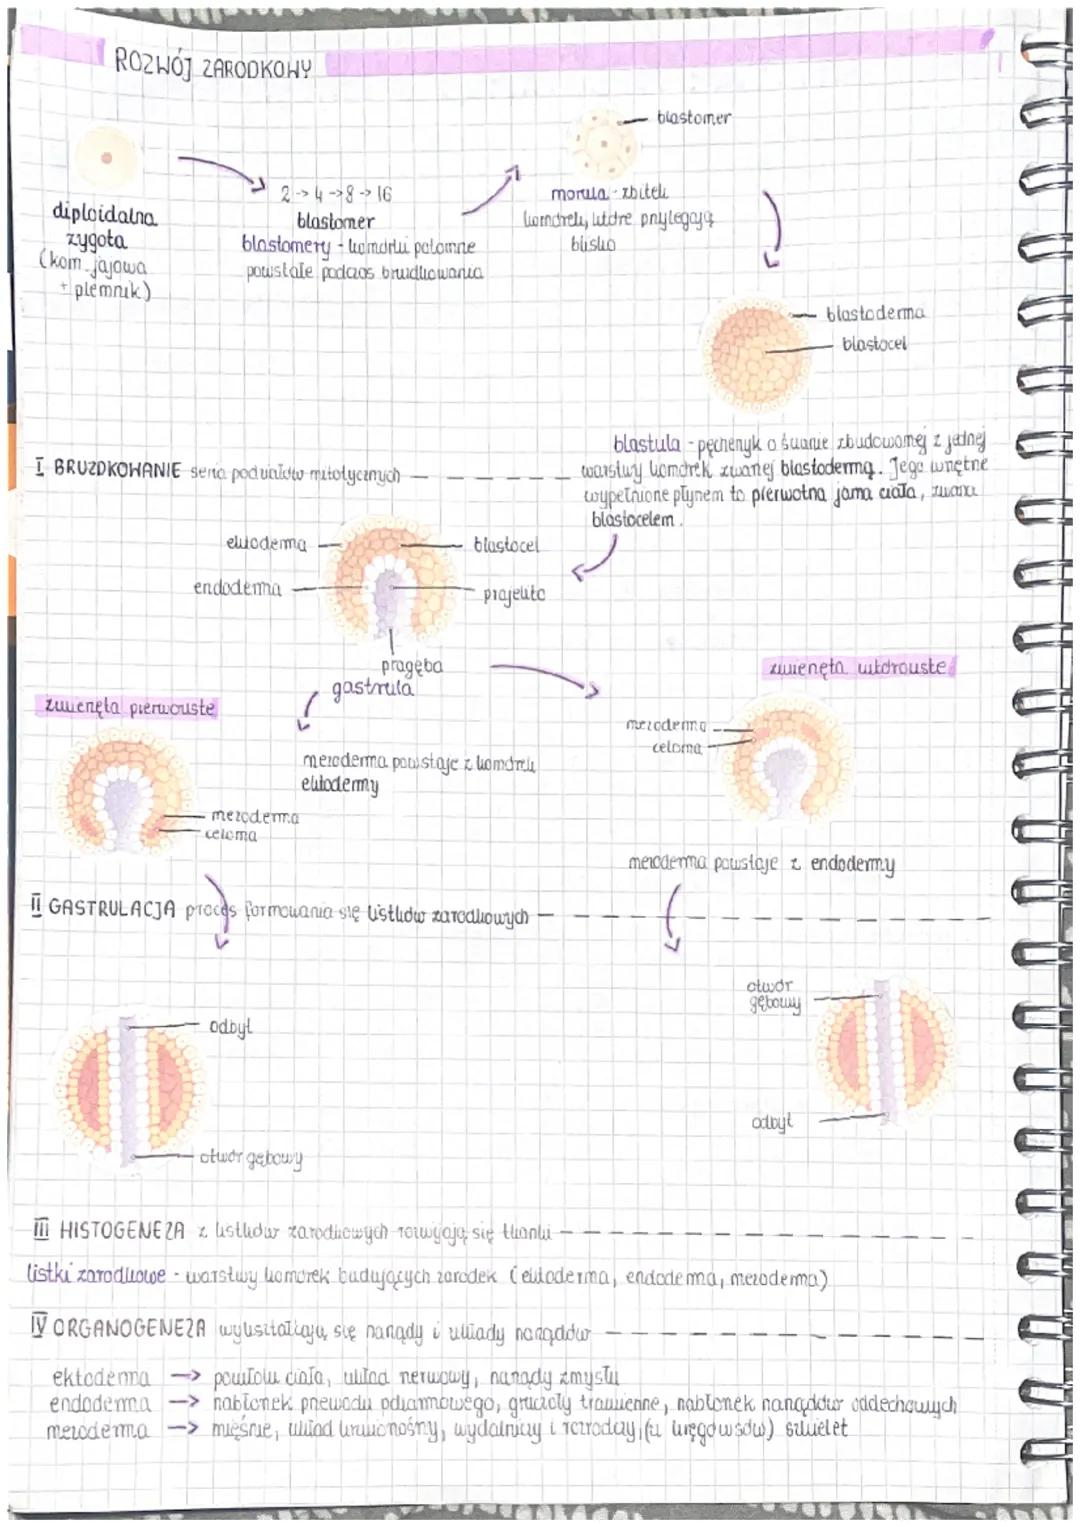 ROZWÓJ ZARODKOWY
blastomer
diploidalna
zygota
(kom. jajowa
+ plemnik)
2 -> 4 -> 8 -> 16
blastomer
blastomery - komórki potomne
powstałe podczas bruzdkowania
morula - zbitek
komórek, które przylegają
blisko
blastoderma
blastocel
blastula - pęcherzyk o ścianie zbudowanej z jednej
warstwy komórek zwanej blastodermą. Jego wnętrze
wypełnione płynem to pierwotna jama ciała, zwana
blastocelem.
I BRUZDKOWANIE seria podziałów mitotycznych
ektoderma
blastocel
endoderma
prajelito
pragęba
gastrula
zwierzęta pierwouste
zwierzęta wtórouste
mezoderma
celoma
mezoderma powstaje z komórek
ektodermy
mezoderma
celoma
mezoderma powstaje z endodermy
II GASTRULACJA proces formowania się listków zarodkowych
otwór
gębowy
odbyt
odbyt
otwór gębowy
III HISTOGENEZA z listków zarodkowych rozwijają się tkanki
listki zarodkowe - warstwy komórek budujących zarodek (ektoderma, endoderma, mezoderma)
IV ORGANOGENEZA wykształcają się narządy i układy narządów
ektoderma -> powłoki ciała, układ nerwowy, narządy zmysłu
endoderma -> nabłonek przewodu pokarmowego, gruczoły trawienne, nabłonek narządów oddechowych
mezoderma -> mięśnie, układ krwionośny, wydalniczy i rozrodczy, (u kręgowców) szkielet